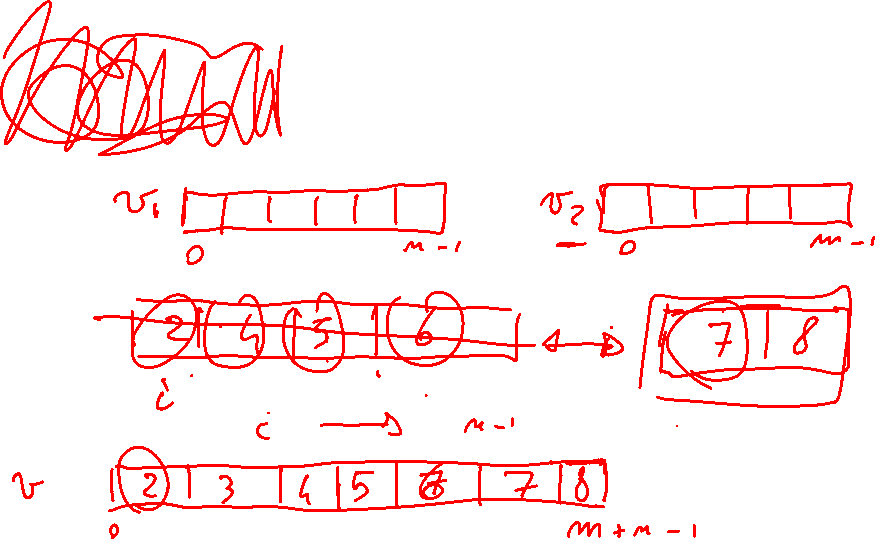 v₁ v₂
0 n-1 0 m-1
2 4 5 6 7 8
i
i n-1
v 2 3 4 5 6 7 8
0 m+n-1